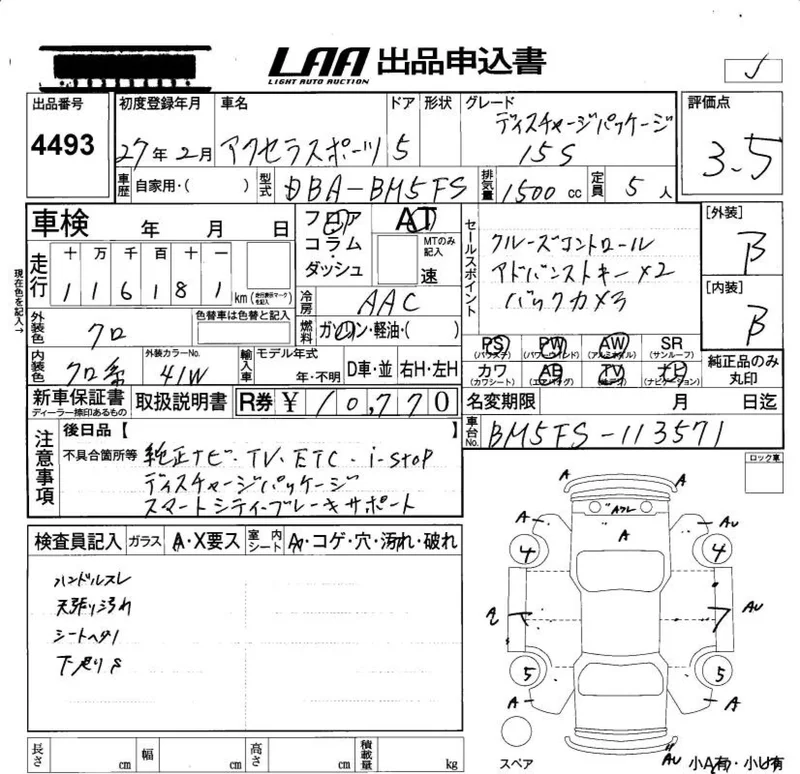 LAA 出品申込書
LIGHT AUTO AUCTION
出品番号
4493
初度登録年月
27年2月
車名
アクセラスポーツ
ドア
5
形状
グレード
ディスチャージパッケージ
15S
評価点
3.5
車歴
自家用・( )
型式
DBA-BM5FS
排気量
1500 cc
定員
5 人
車検 年 月 日
フロア
コラム・
ダッシュ
AT
MTのみ記入
速
セールスポイント
クルーズコントロール
アドバンストキー×2
バックカメラ
[外装]
B
[内装]
B
現在色を記入→
走行
十 万 千 百 十 一
1 1 6 1 8 1
km
(走行表示マーク)を記入
冷房
AAC
燃料
ガソリン・軽油・( )
外装色
クロ
色替車は色替と記入
PS
(パワステ)
PW
(パワーウインド)
AW
(アルミホイル)
SR
(サンルーフ)
カワ
(カワシート)
AB
(エアバッグ)
TV
ナビ
(ナビゲーション)
純正品のみ
丸印
内装色
クロ系
外装カラーNo.
41W
輸入車
モデル年式
年・不明
D車・並
右H・左H
新車保証書
ディーラー捺印あるもの
取扱説明書
R券
¥ 10,770
名変期限 月 日迄
車台No.
BM5FS-113571
注意事項
後日品【 】
不具合箇所等
純正ナビ・TV・ETC・i-stop
ディスチャージパッケージ
スマートシティブレーキサポート
ロック車
検査員記入
ガラス
A・X要ス
室内シート
A・コゲ・穴・汚れ・破れ
ハンドルスレ
天張り汚れ
シートヘタリ
下廻りS
A
A
Aフレ
A
A
AU
4
4
AU
5
5
A
A
AU
スペア
小A有・小U有
長さ cm
幅 cm
高さ cm
積載量 kg